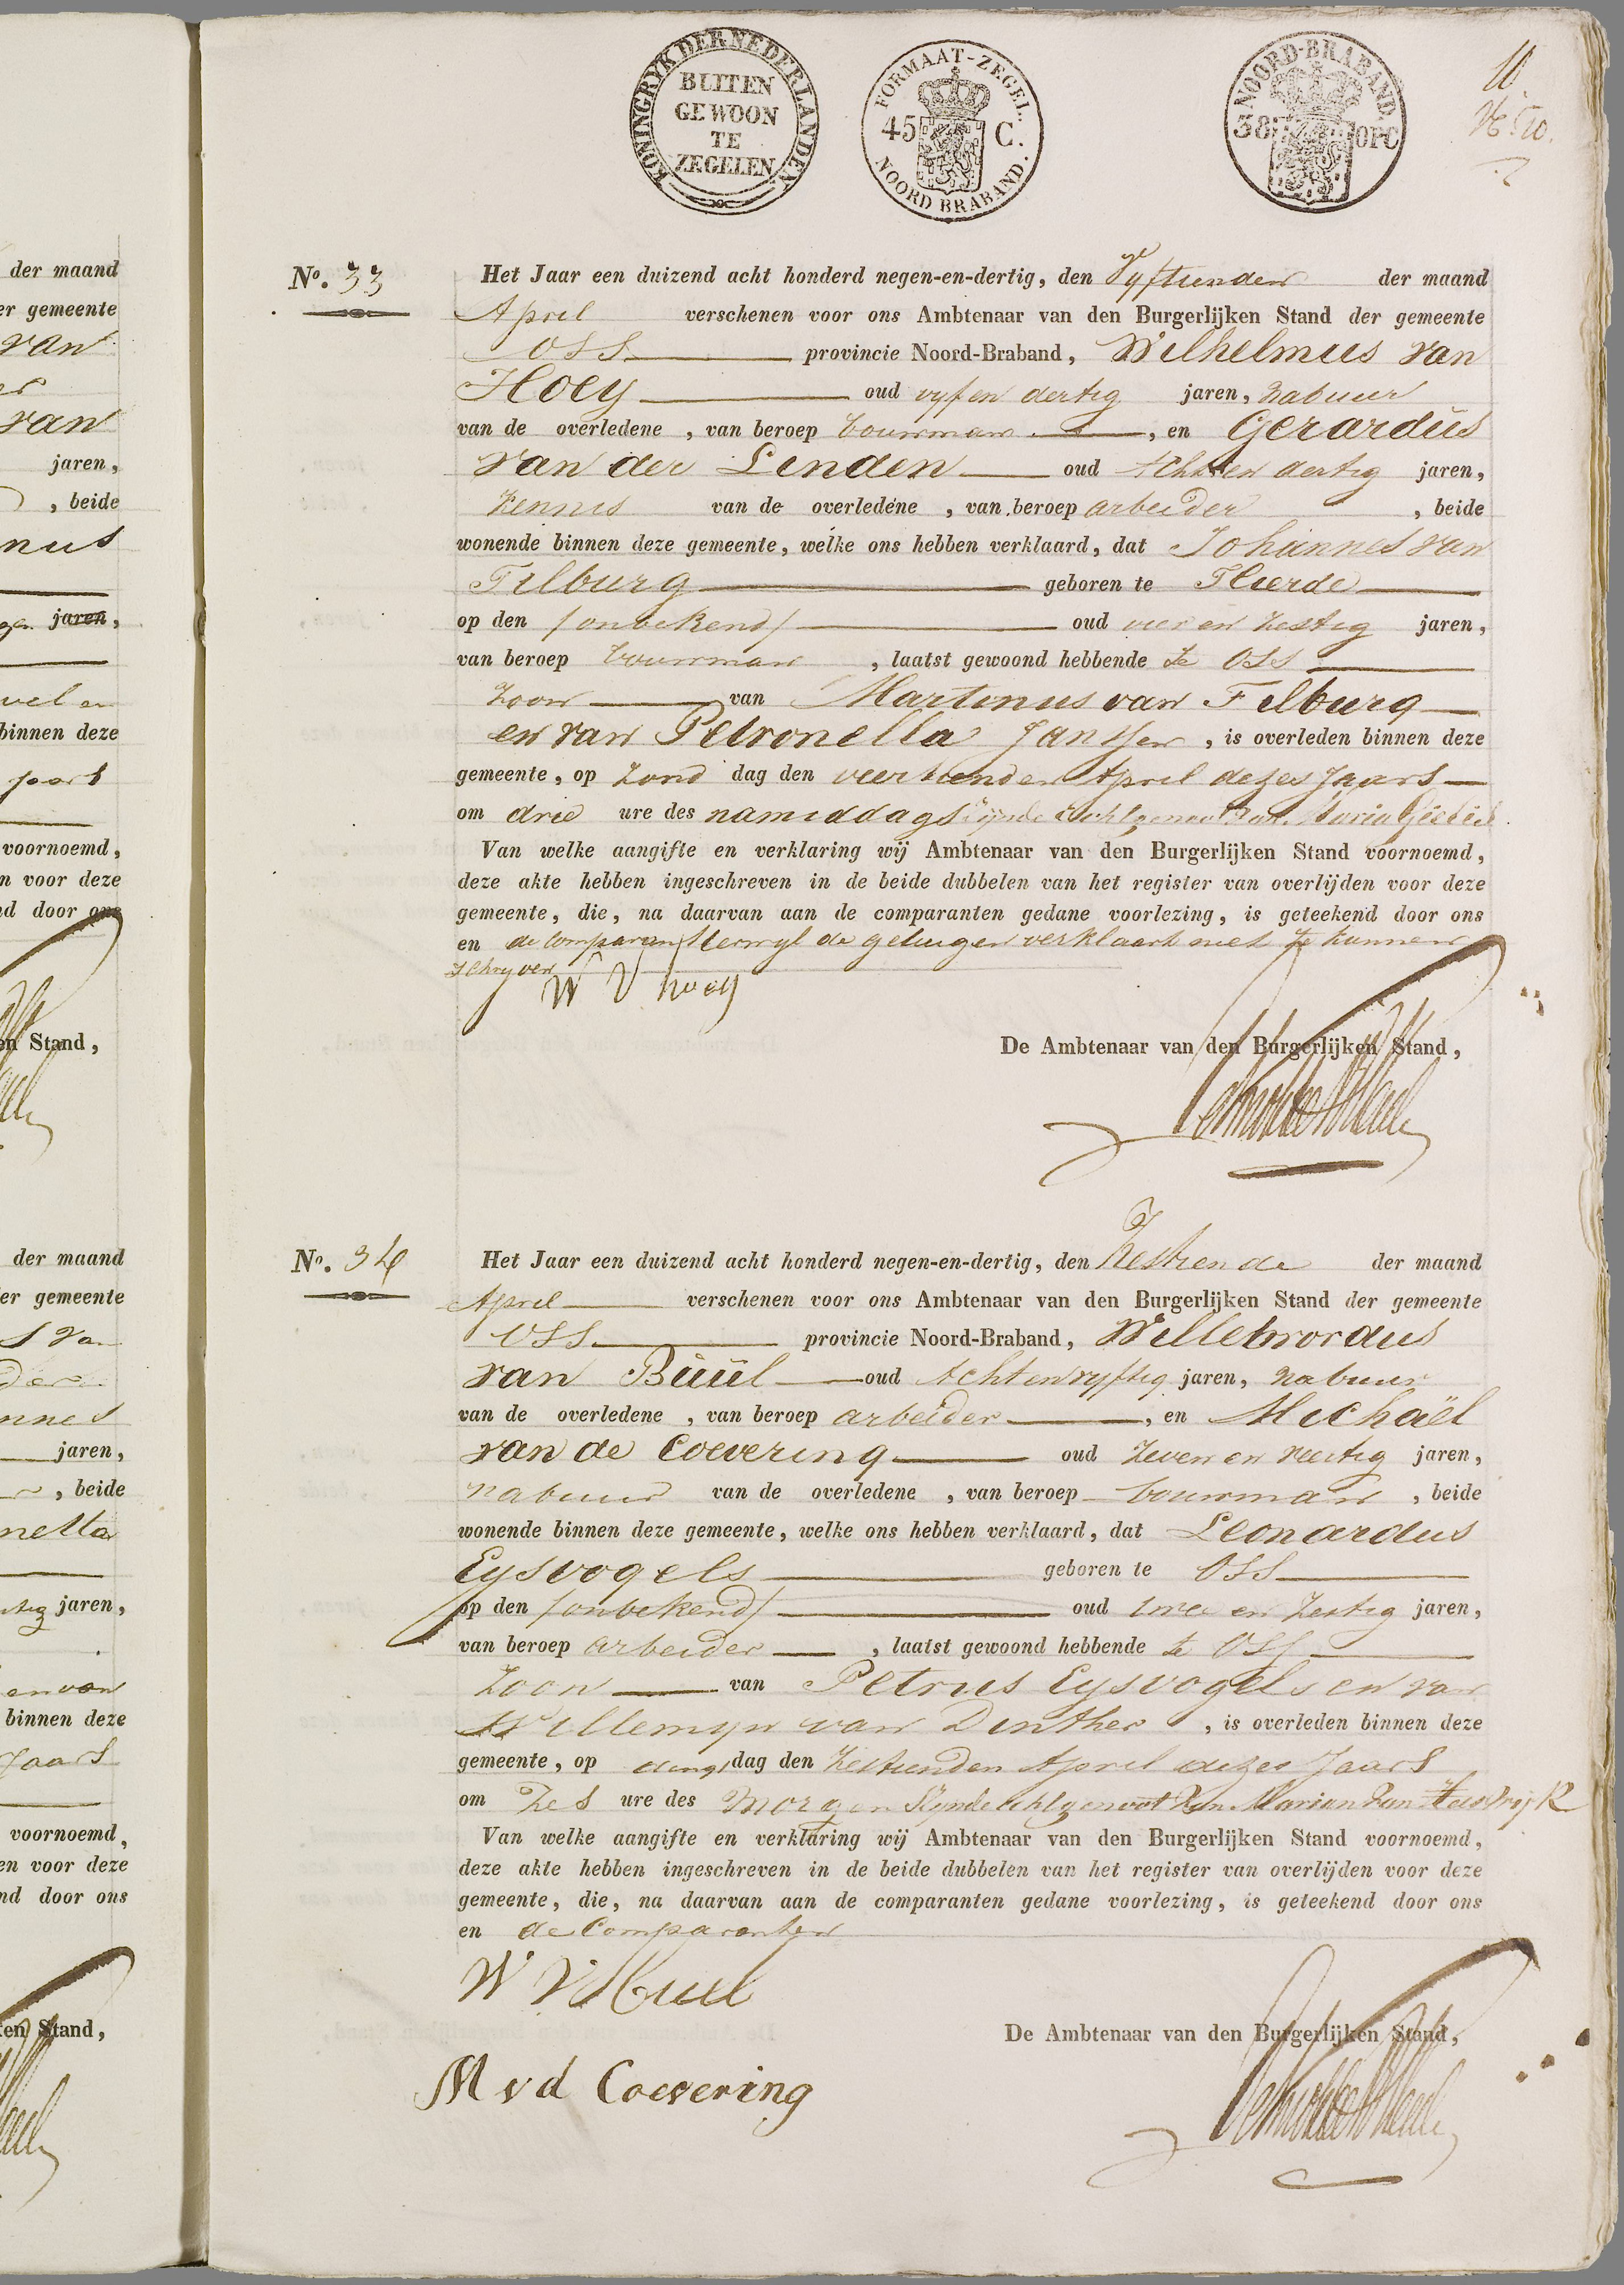 KONINGRYK DER NEDERLANDEN.
BUITEN
GEWOON
TE
ZEGELEN
FORMAAT-ZEGEL.
45 C.
NOORD BRABAND.
NOORD-BRABAND.
38 OPC
der maand
er gemeente
van
van
jaren,
, beide
nus
jaren,
binnen deze
voornoemd,
n voor deze
nd door ons
en Stand,
der maand
er gemeente
nnes
jaren,
, beide
netta
jaren,
en van
binnen deze
Jaars
voornoemd,
en voor deze
nd door ons
en Stand,
No. 33
Het Jaar een duizend acht honderd negen-en-dertig, den Vyftienden der maand
April verschenen voor ons Ambtenaar van den Burgerlijken Stand der gemeente
OSS provincie Noord-Braband, Wilhelmus van
Hoey oud vyf en dertig jaren, nabuur
van de overledene , van beroep bouwman , en Gerardus
van der Linden oud Acht en dertig jaren,
kennis van de overledene , van beroep arbeider , beide
wonende binnen deze gemeente, welke ons hebben verklaard, dat Johannes van
Tilburg geboren te
op den /onbekend/ oud vier en zestig jaren,
van beroep bouwman , laatst gewoond hebbende te Oss
zoon van Martinus van Tilburg
en van Petronella Janssen , is overleden binnen deze
gemeente, op zond dag den veertienden April dezes Jaars
om drie ure des namiddags zijnde Echtgenoot van Maria
Van welke aangifte en verklaring wij Ambtenaar van den Burgerlijken Stand voornoemd,
deze akte hebben ingeschreven in de beide dubbelen van het register van overlijden voor deze
gemeente, die, na daarvan aan de comparanten gedane voorlezing, is geteekend door ons
en de comparant terwyl de getuigen verklaart niet te kunnen
schryven
W V hoey
De Ambtenaar van den Burgerlijken Stand,
No. 34
Het Jaar een duizend acht honderd negen-en-dertig, den Zestiende der maand
April verschenen voor ons Ambtenaar van den Burgerlijken Stand der gemeente
OSS provincie Noord-Braband, Willebrordus
van Buül oud Acht en vyftig jaren, nabuur
van de overledene , van beroep arbeider , en Michaël
van de Coevering oud zeven en veertig jaren,
nabuur van de overledene , van beroep bouwman , beide
wonende binnen deze gemeente, welke ons hebben verklaard, dat Leonardus
Eysvogels geboren te OSS
op den /onbekend/ oud twee en zestig jaren,
van beroep arbeider , laatst gewoond hebbende te OSS
zoon van Petrus Eysvogels en van
Willemyn van Dinther , is overleden binnen deze
gemeente, op dings dag den zestienden April dezes Jaars
om zes ure des morgens zijnde Echtgenoot van Maria van
Van welke aangifte en verklaring wij Ambtenaar van den Burgerlijken Stand voornoemd,
deze akte hebben ingeschreven in de beide dubbelen van het register van overlijden voor deze
gemeente, die, na daarvan aan de comparanten gedane voorlezing, is geteekend door ons
en de Comparanten
W V Buul
De Ambtenaar van den Burgerlijken Stand,
M v d Coevering